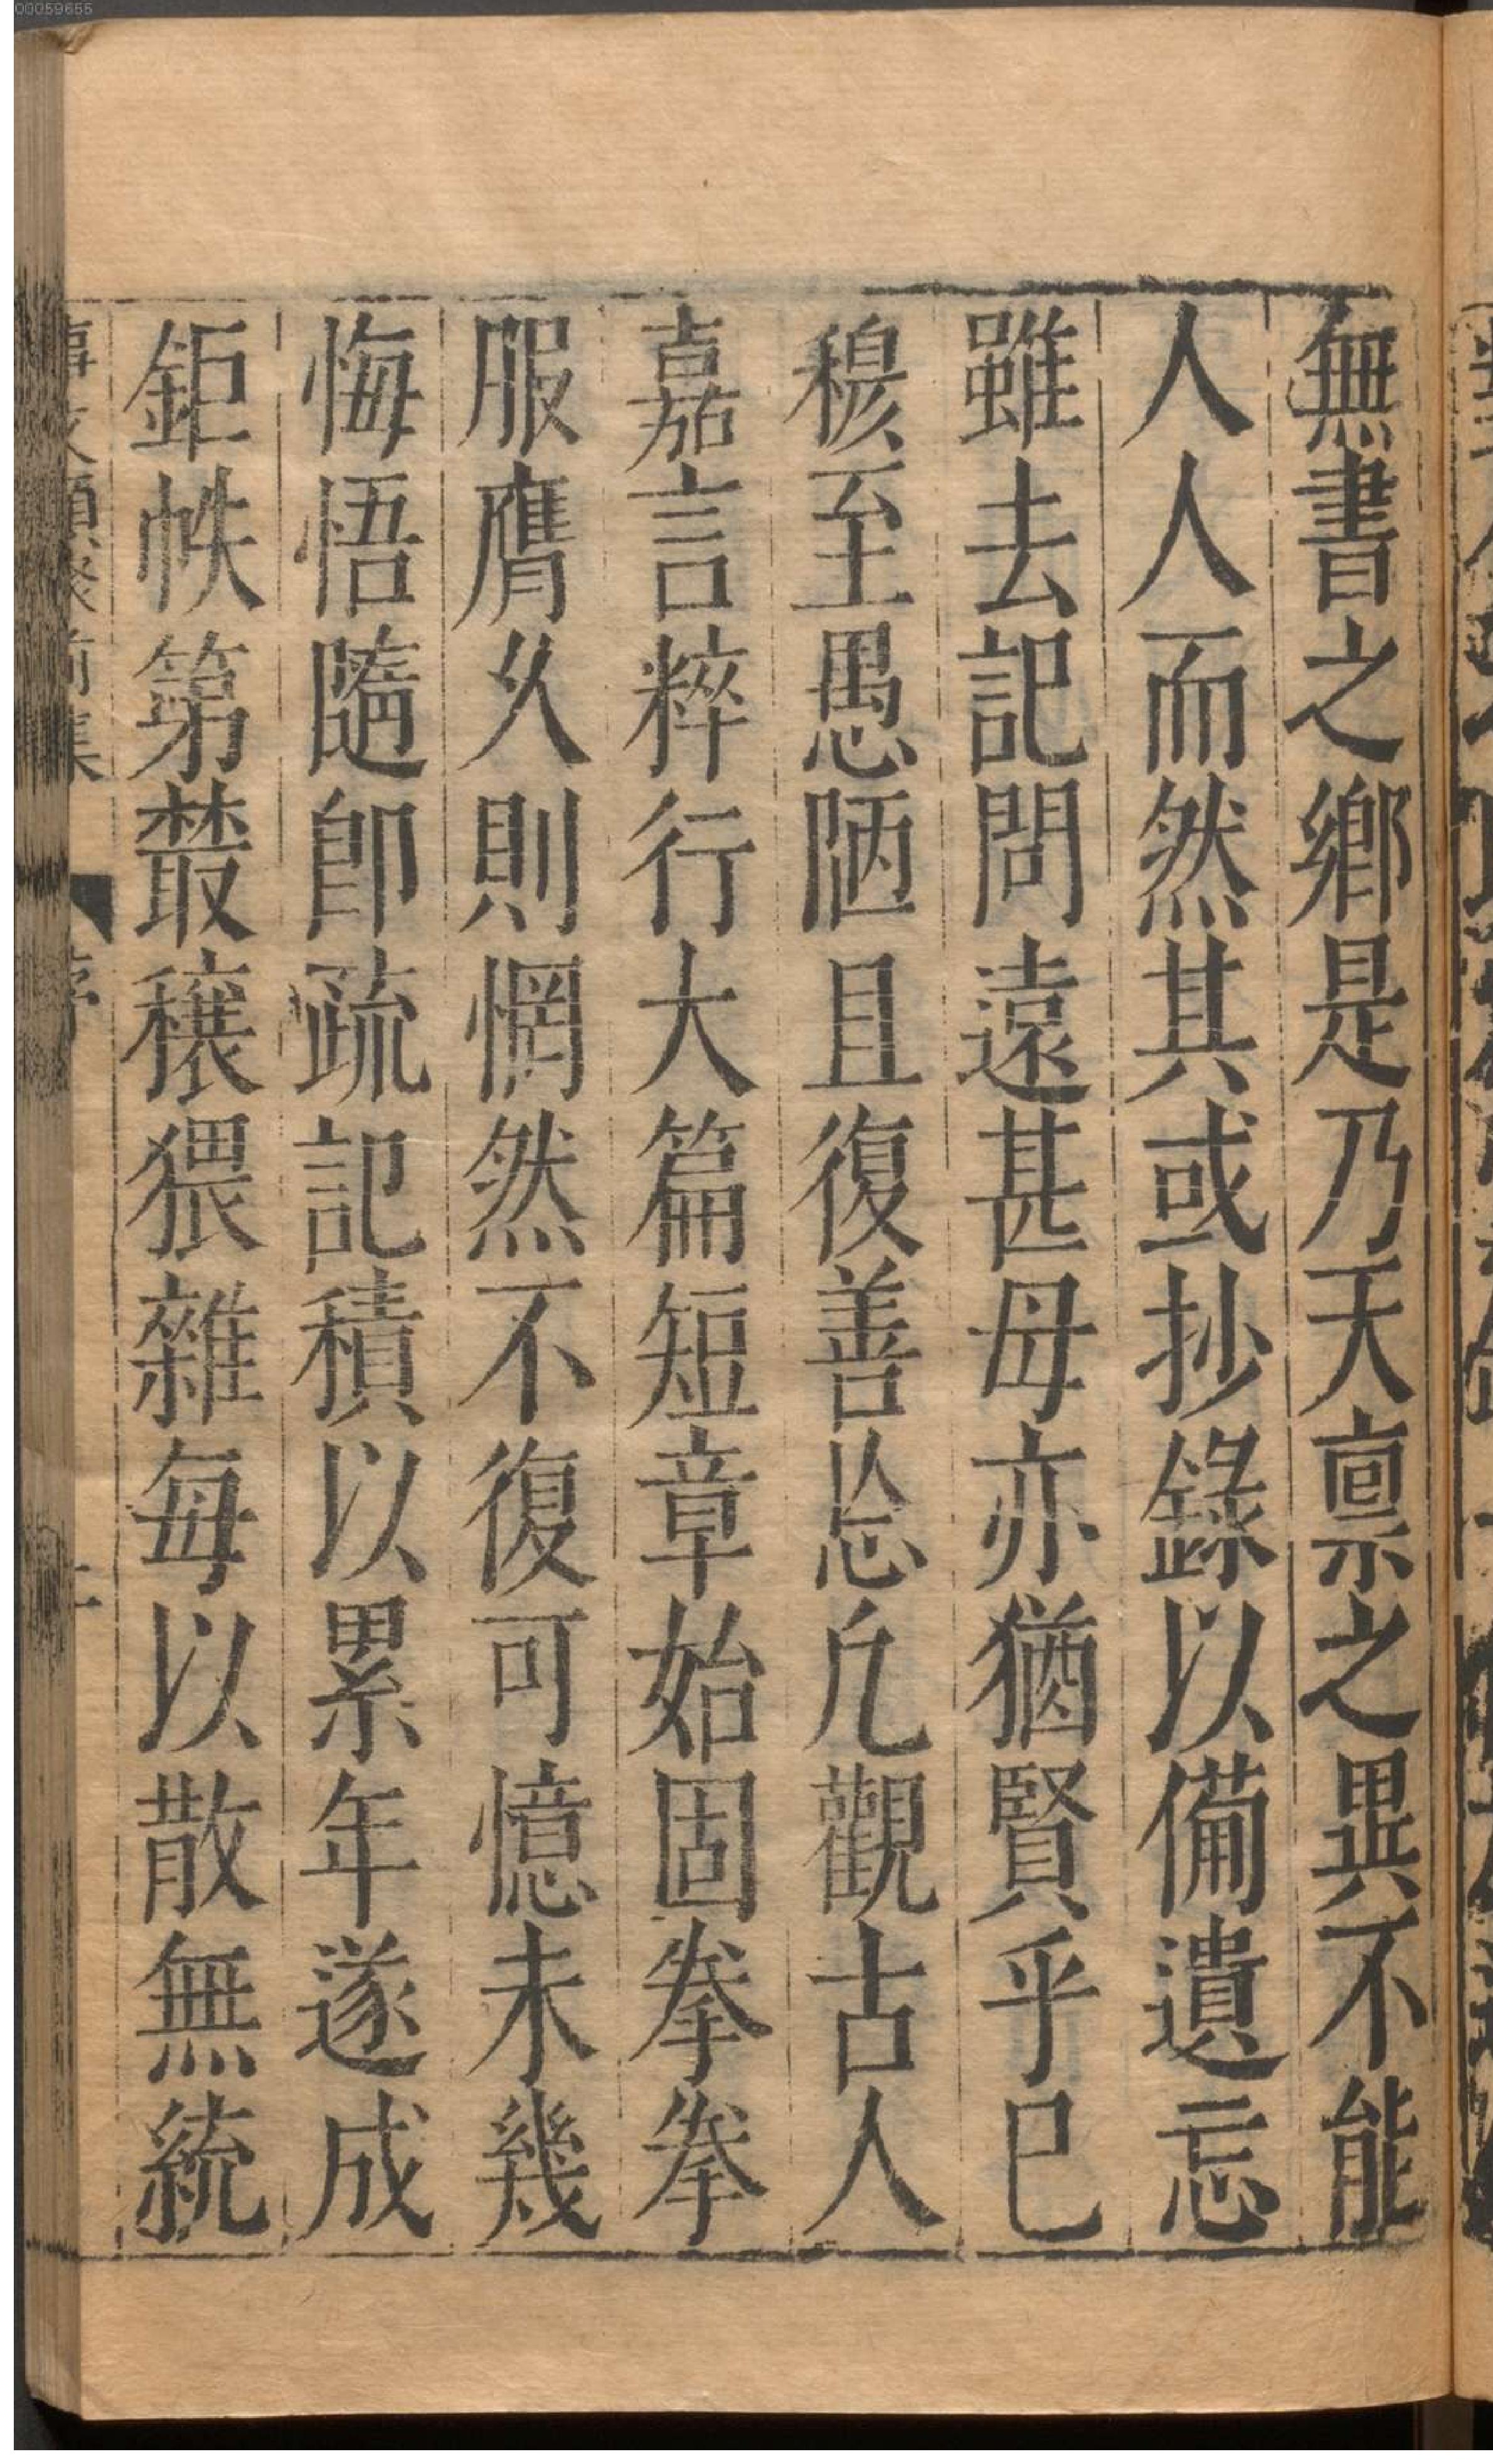 無書之鄉是乃天稟之異不能
人人而然其或抄錄以備遺忘
雖去記問遠甚毋亦猶賢乎已
穆至愚陋且復善忘凡觀古人
嘉言粹行大篇短章始固拳拳
服膺久則惘然不復可憶未幾
悔悟隨即疏記積以累年遂成
鉅帙第叢穰猥雜每以散無統
事文類聚前集
序
二
00059655